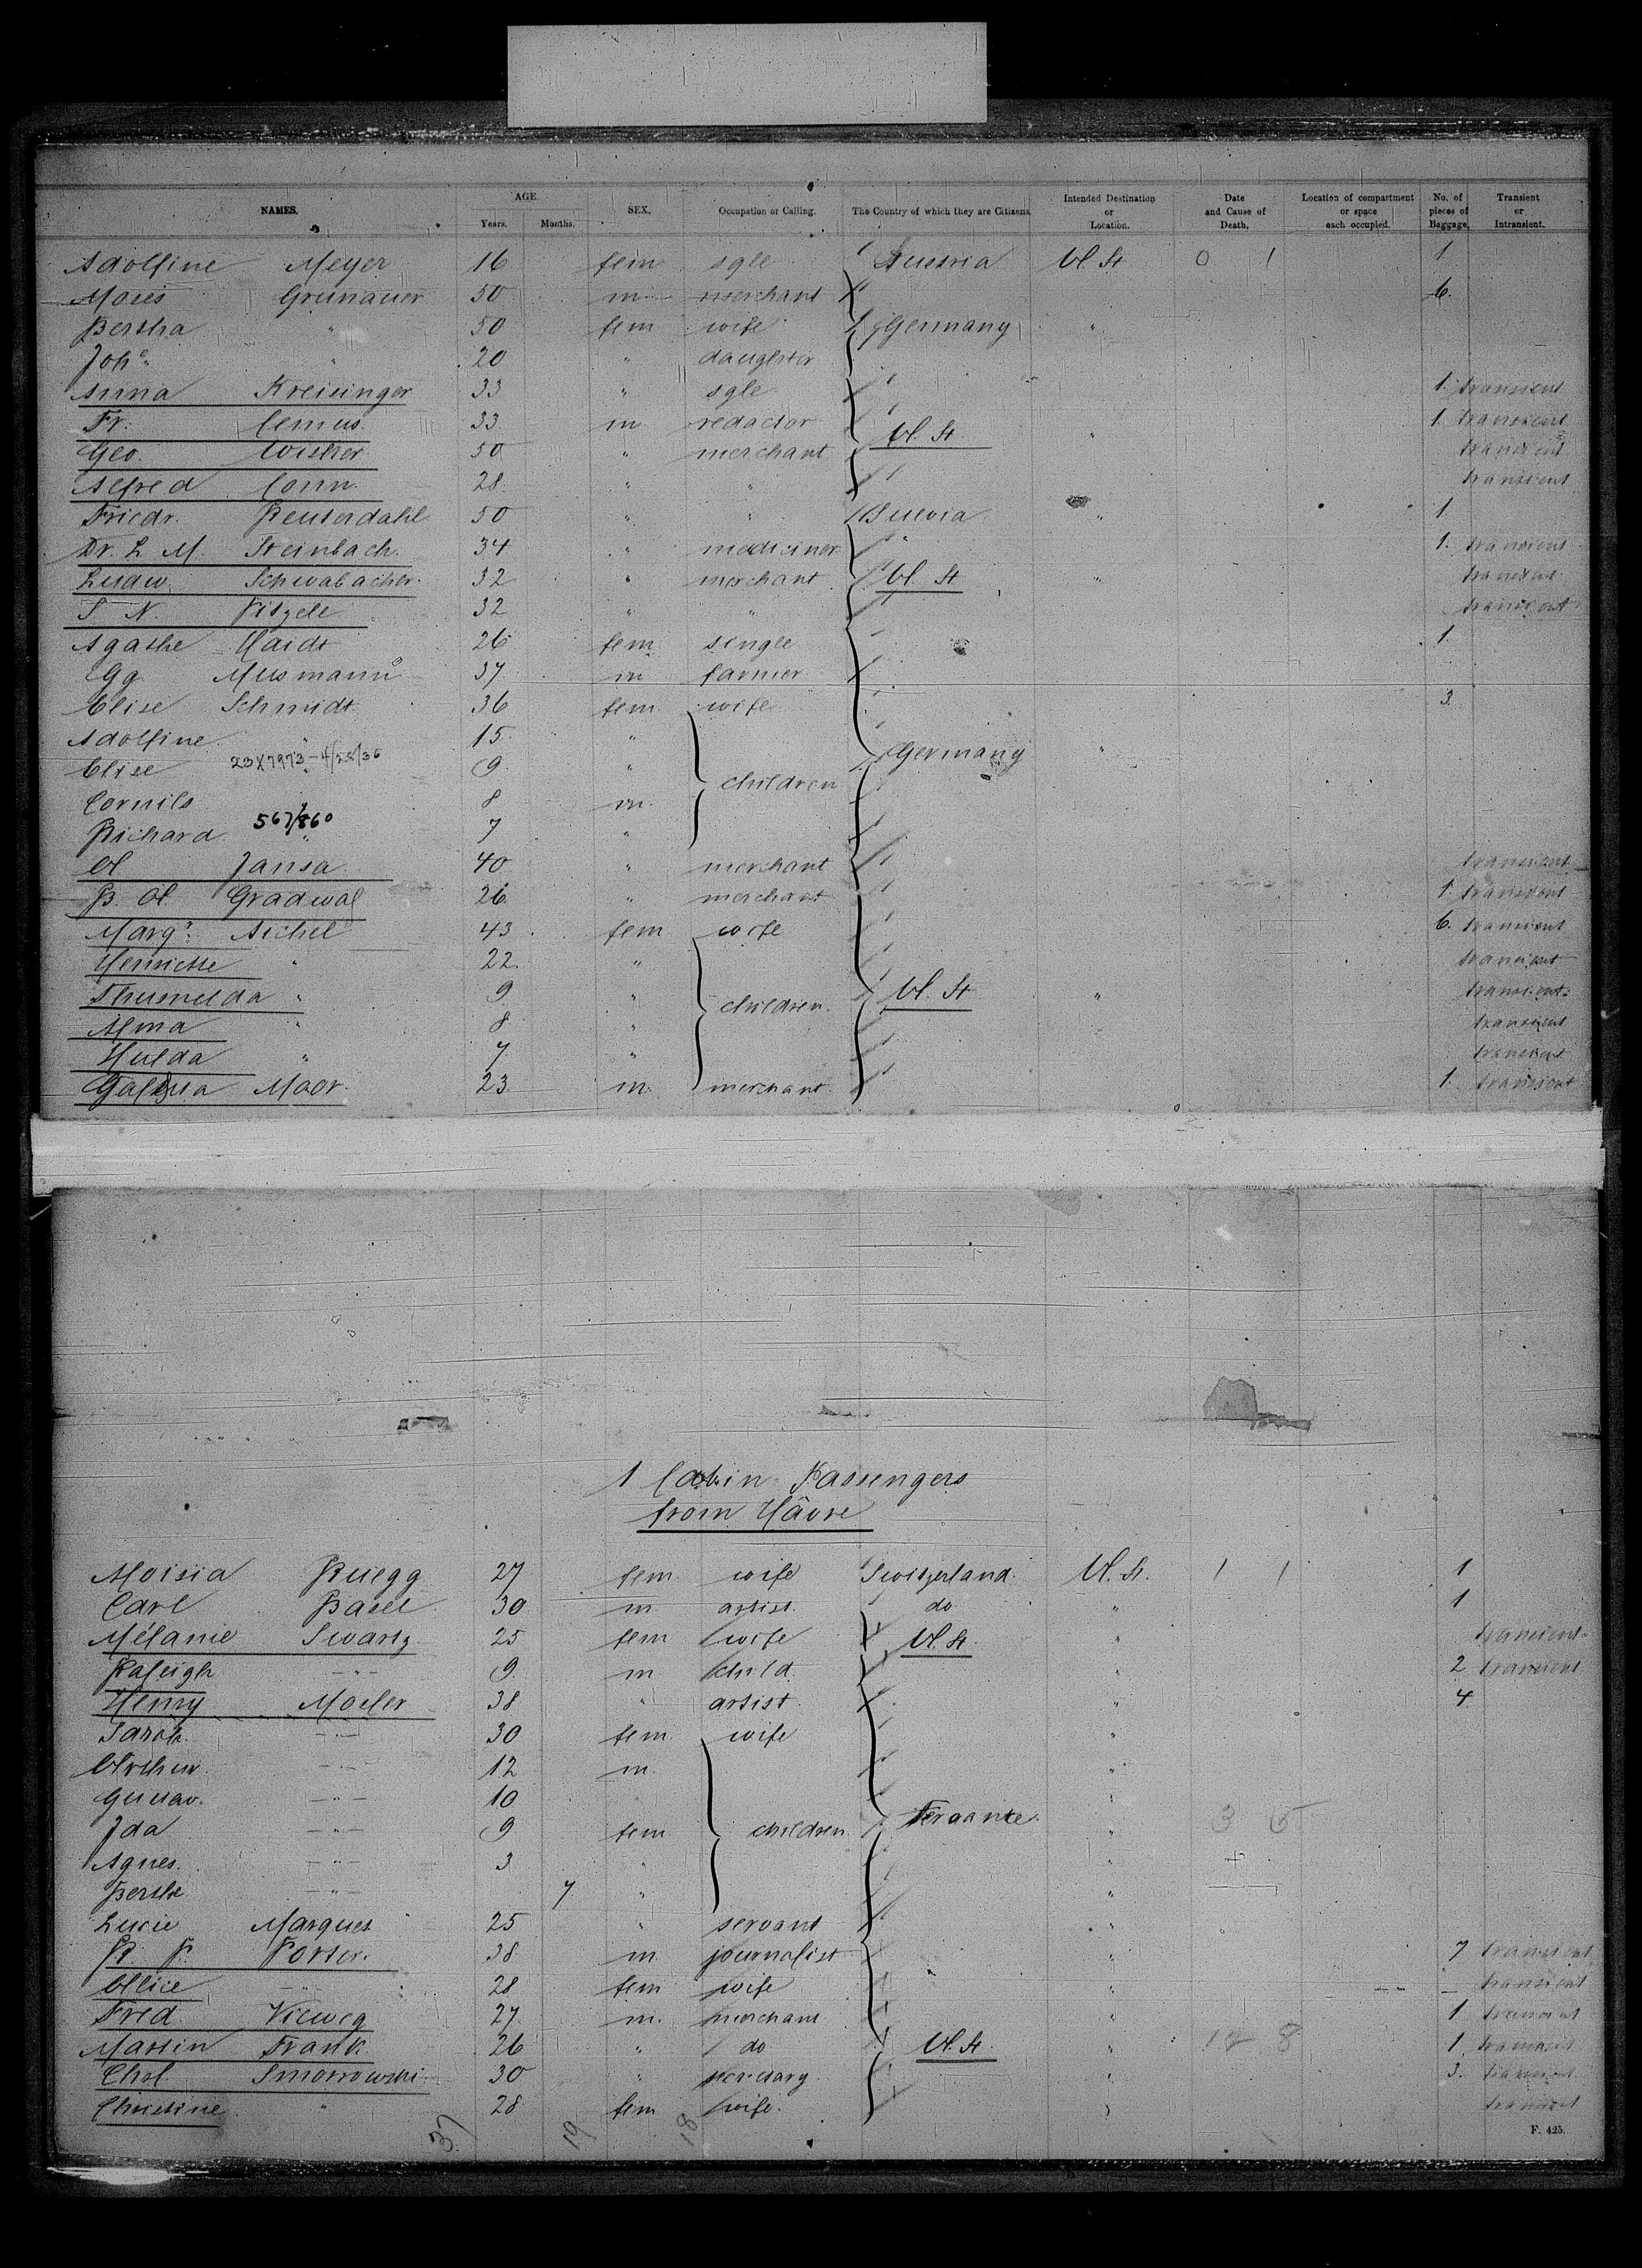 NAMES. AGE Years. Months. SEX. Occupation or Calling. The Country of which they are Citizens. Intended Destination or Location. Date and Cause of Death, Location of compartment or space each occupied. No. of pieces of Baggage, Transient or Intransient.
Adolfine Meyer 16 fem sgle Austria U. St 0 1 1
Moses Grünauer 50 m merchant 6.
Bertha " 50 fem wife Germany "
Joh^a " 20 " daughter
Anna Kreisinger 33 " sgle 1. transient
Fr. 33 m redactor U. St. " 1 transient
Geo. Wisher 50 " merchant transient
Alfred Conn. 28 " " transient
Friedr. Reuterdahl 50 " " " 1
Dr. L. M. Steinbach. 34 " mediciner " 1. transient
Ludw. Schwabacher 32 " merchant U. St " transient
S N. Pitzele 32 " " transient
Agathe Haidt 26 fem single 1.
Gg. Musmann 37 m farmer
Elise Schmidt 36 fem wife 3.
Adolfine " 15. "
Elise 23X7973-4/28/36 9 " children Germany "
Cornils 8 m.
Richard 567/860 7 "
A Jansa 40 " merchant transient
B. A. Gradwal 26 " merchant 1 transient
Marg^a. Aichel 43 fem wife 6. transient
Henriette " 22. " transient
Thusnelda " 9 " children. U. St " transient
Alma " 8 " transient
Hulda " 7 " transient
Maor. 23 m. merchant 1. transient
1 Cabin Passengers
from Hâvre
Aloisia Rüegg 27 fem. wife Switzerland. U. St. 1 1 1
Carl Basel 30 m artist. do " 1
Mélanie Swartz 25 fem wife U. St. " transient
Raleigh - " - 9. m child. " 2 transient
Henry Mosler 38 " artist. " 4
Sarah. - " - 30 fem. wife "
Arthur. - " - 12 m. "
Gustav. - " - 10 "
Ida - " - 9 fem children. " 3 5
Agnes. - " - 3 " " +
Berthe - " - 7 " "
Lucie Marques 25 " servant "
R. P. Porter. 38 m. journalist " 7 transient
Alice - " - 28 fem wife " transient
Fred. Vieweg 27. m. merchant " 1 transient
Martin Frank 26 " do U. St. " 8 1 transient
Chsl. Smorrowski 30 " secretary " 3. transient
Christine " 28 fem wife. " transient
37 19 18
F. 425.